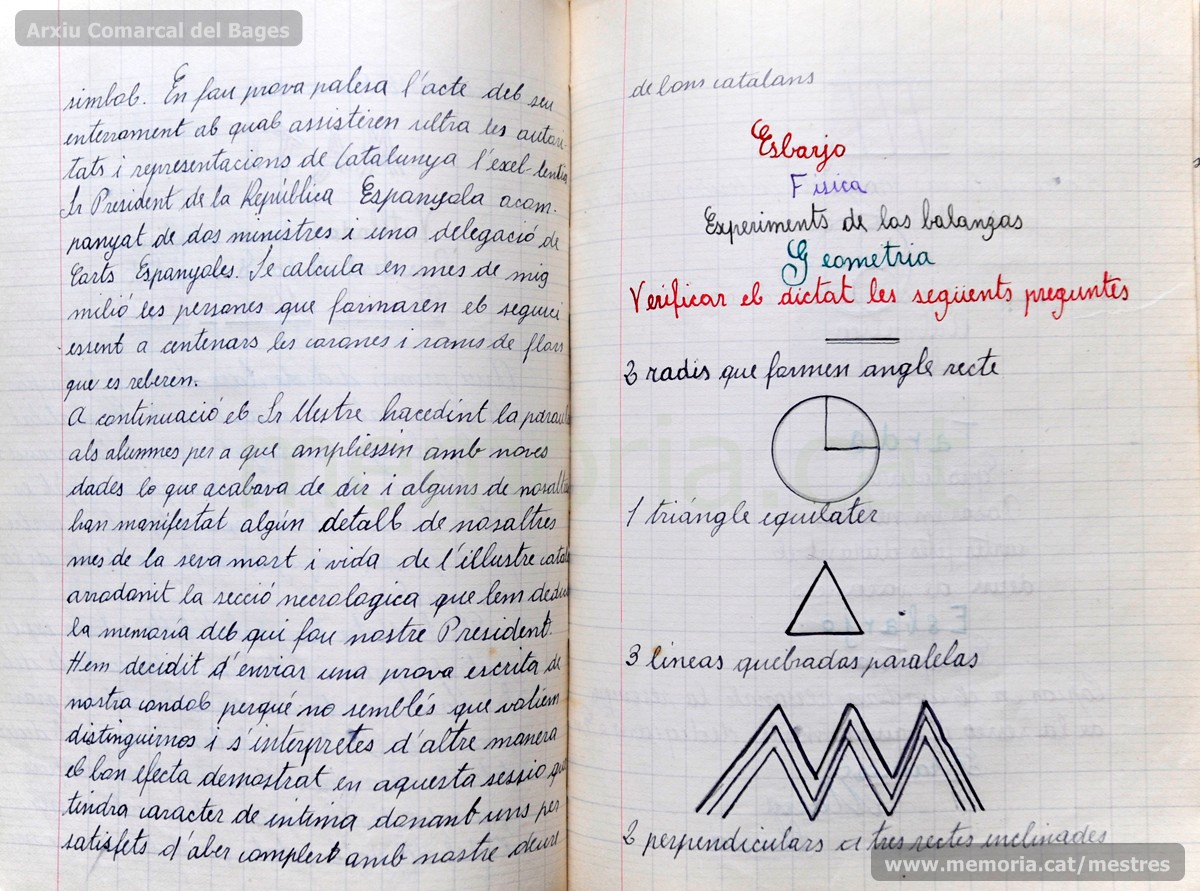 Arxiu Comarcal del Bages
simbol. En fou prova palesa l'acte del seu
enterrament al qual assistiren ultra les autori-
tats i representacions de Catalunya l'exel-lentis
Sr President de la República Espanyola acom-
panyat de dos ministres i una delegació de
Corts Espanyoles. Se calcula en mes de mig
milió les persones que formaren el seguici
essent a centenars les corones i rams de flors
que es reberen.
A continuació el Sr Mestre hacedint la paraula
als alumnes per a que ampliessin amb noves
dades lo que acabava de dir i alguns de nosaltres
han manifestat algún detall de nosaltres
mes de la seva mort i vida de l'illustre català
arrodonit la secció necrologica que hem dedicat
la memoria del qui fou nostre President.
Hem decidit d'enviar una prova escrita de
nostra condol perqué no semblés que voliem
distinguirnos i s'interpretes d'altre manera
el bon efecta demostrat en aquesta sessio que
tindra caracter de intima donant uns per
satisfets d'aber complert amb nostre deure
de bons catalans
Esbarjo
Física
Experiments de las balanzas
Geometria
Verificar el dictat les següents preguntes
2 radis que formen angle recte
1 triángle equilater
3 lineas quebradas paralelas
2 perpendiculars a tres rectes inclinades
memoria.cat
www.memoria.cat/mestres